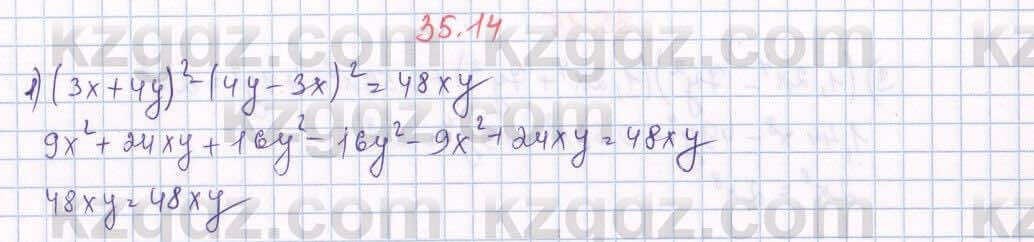 35.14
1) (3x+4y)²-(4y-3x)²=48xy
9x²+24xy+16y²-16y²-9x²+24xy=48xy
48xy=48xy
kzgdz.com kzgdz.com
kzgdz.com
kzgdz.com kzgdz.com